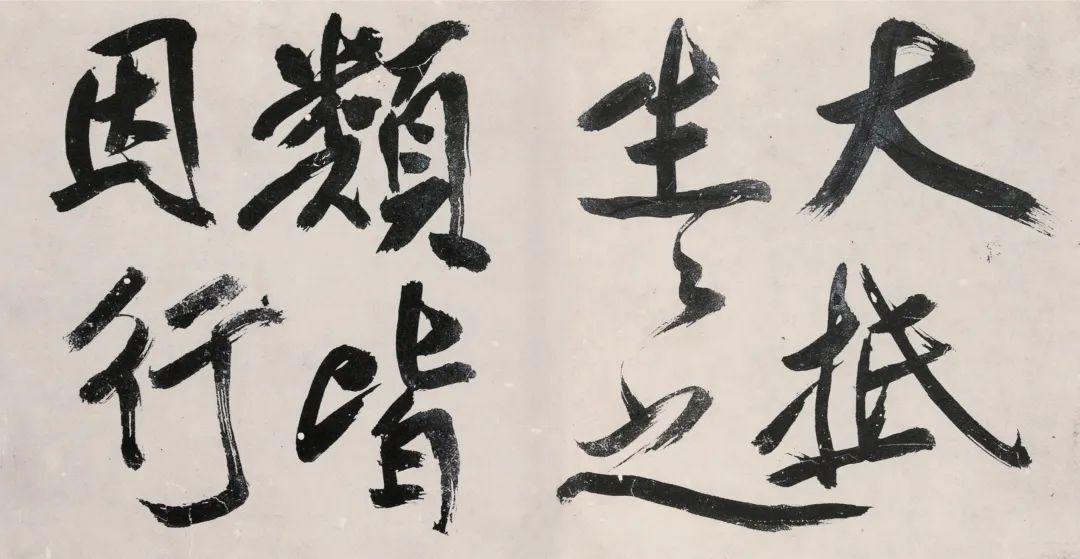 大抵
生〻之
類皆
因行